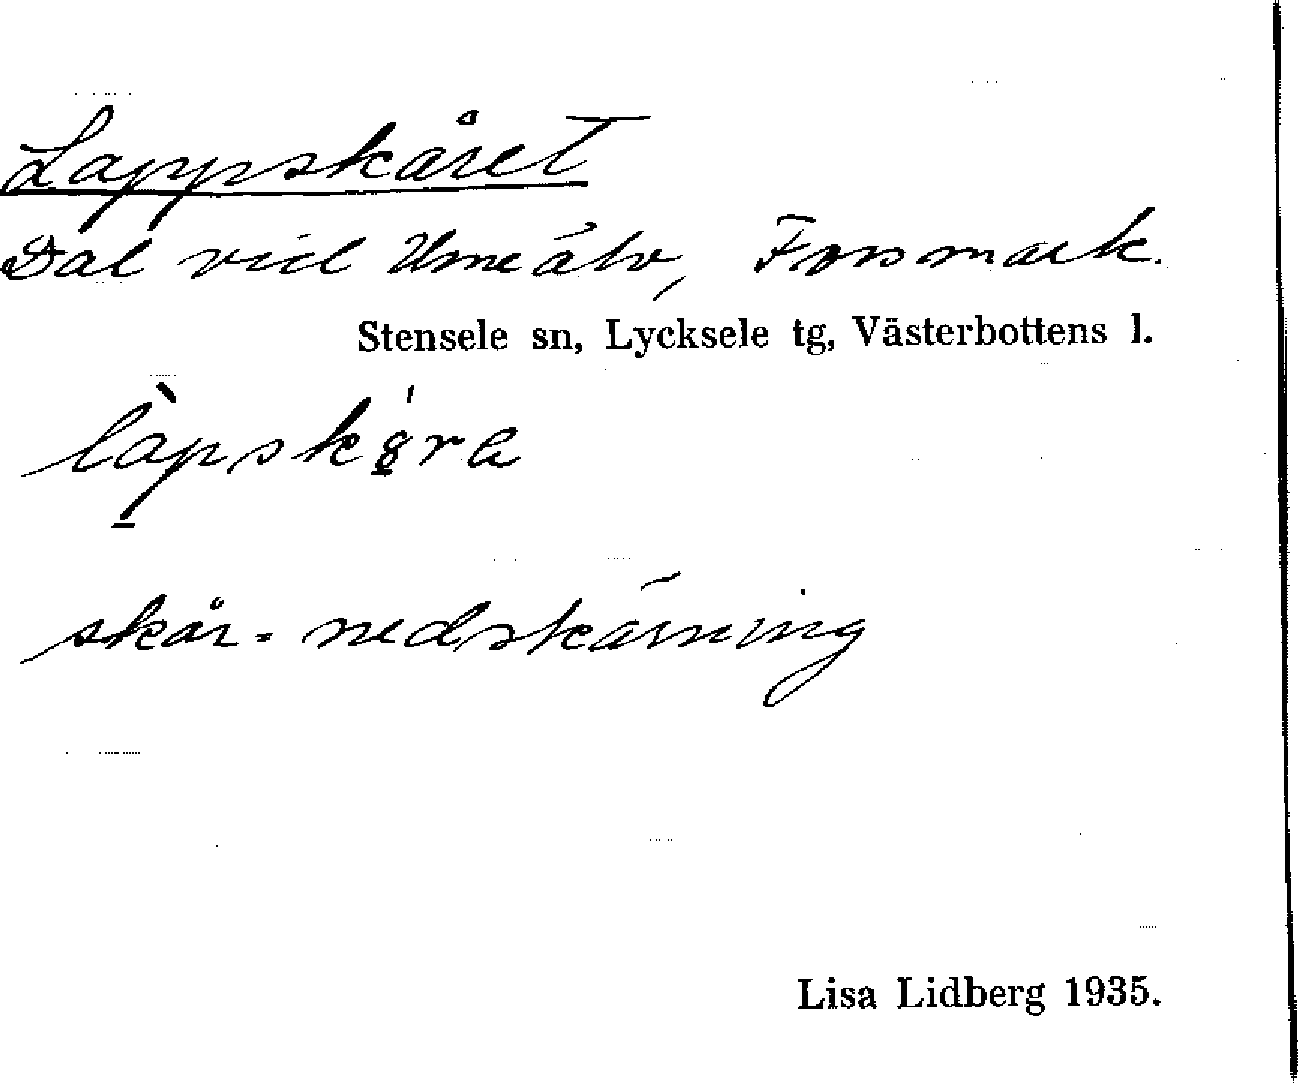 Lappskåret
Dal vid Umeälv, Forsmark.
Stensele sn, Lycksele tg, Västerbottens l.
skår = nedskärning
Lisa Lidberg 1935.